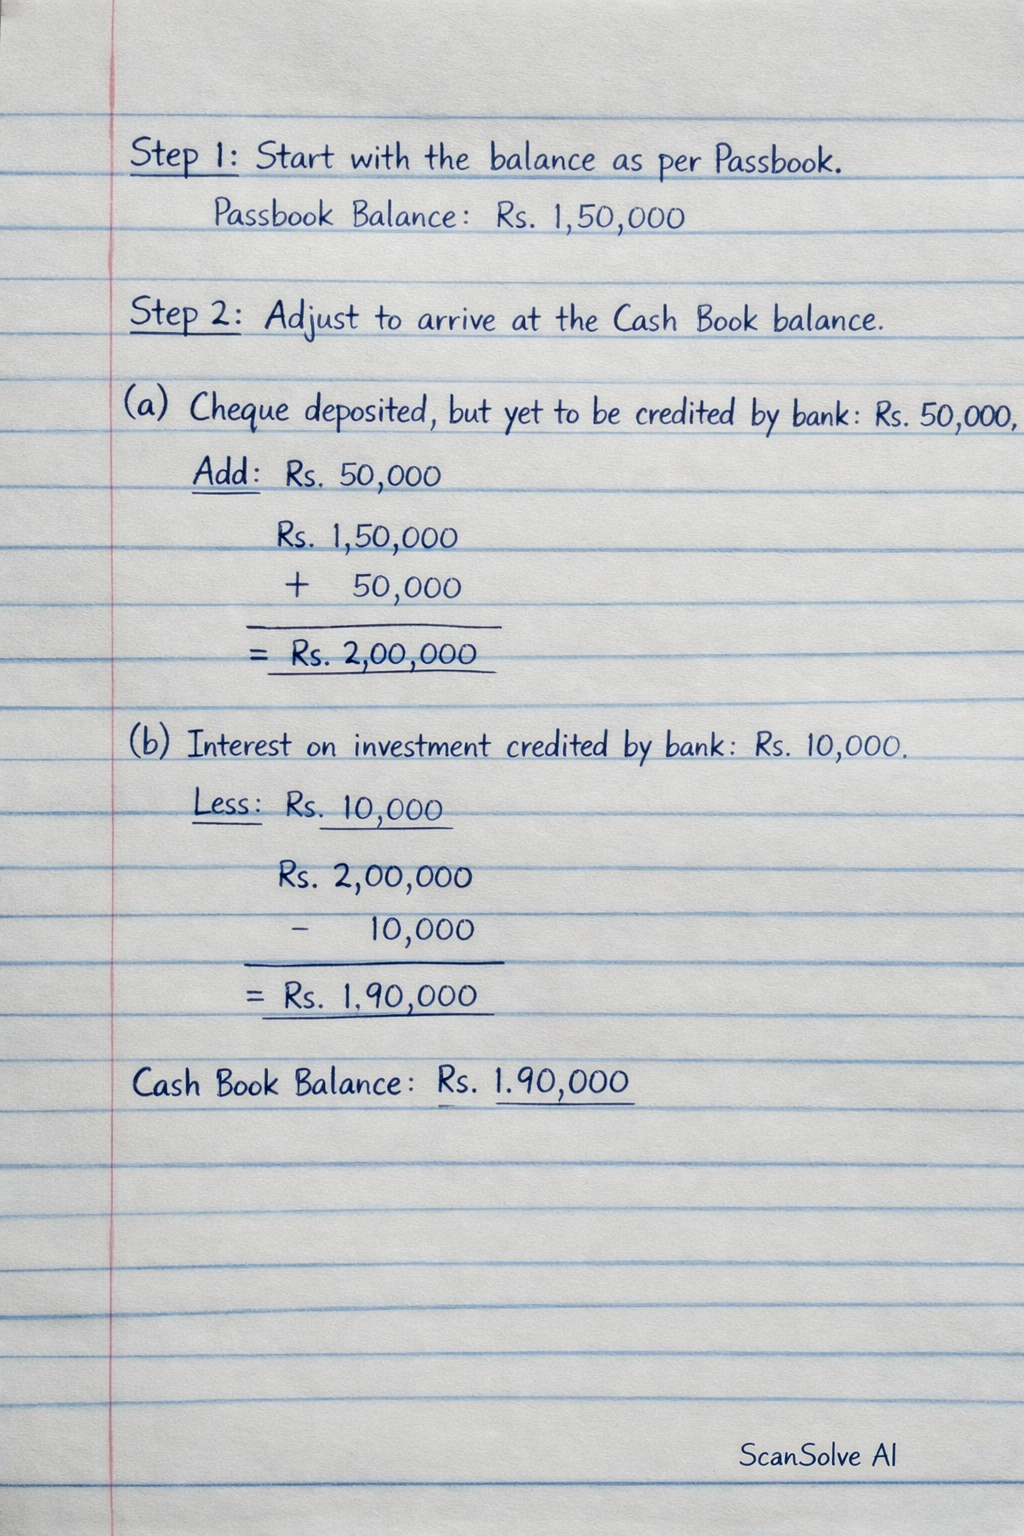 Step 1: Start with the balance as per Passbook.
Passbook Balance: Rs. 1,50,000
Step 2: Adjust to arrive at the Cash Book balance.
(a) Cheque deposited, but yet to be credited by bank: Rs. 50,000,
Add: Rs. 50,000
Rs. 1,50,000
+ 50,000
= Rs. 2,00,000
(b) Interest on investment credited by bank: Rs. 10,000.
Less: Rs. 10,000
Rs. 2,00,000
- 10,000
= Rs. 1.90,000
Cash Book Balance: Rs. 1.90,000
ScanSolve AI